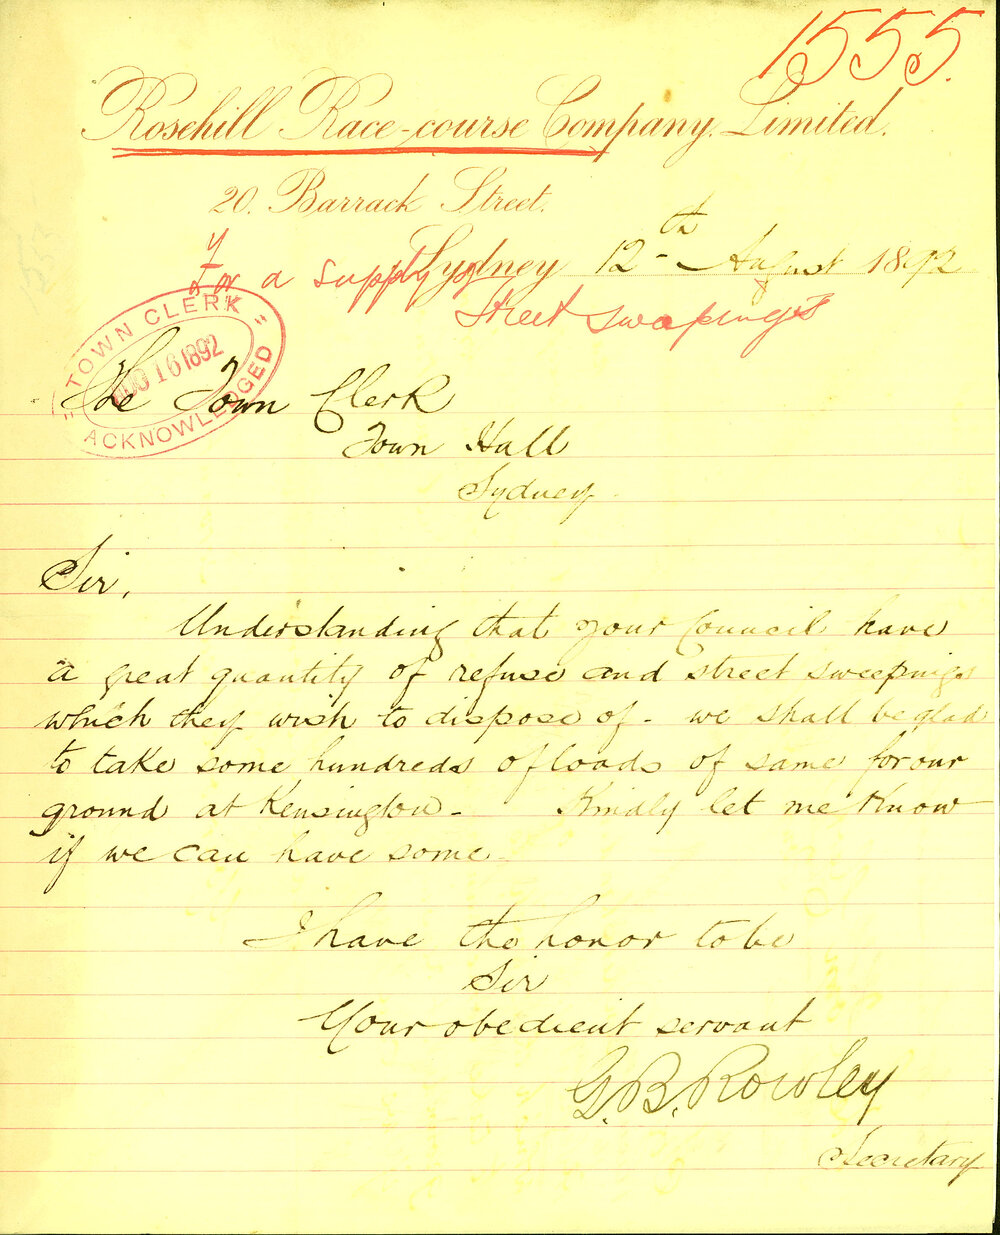 1555.
Rosehill Race-course Company, Limited.
20. Barrack Street.
Sydney 12th August 1892
For a supply of
Street swepings
TOWN CLERK
AUG 16 1892
ACKNOWLEDGED
The Town Clerk
Town Hall
Sydney
Sir,
Understanding that your Council have
a great quantity of refuse and street sweepings
which they wish to dispose of - we shall be glad
to take some hundreds of loads of same for our
ground at Kensington - Kindly let me know
if we can have some -
I have the honor to be
Sir
Your obedient servant
G. B. Rowley
Secretary